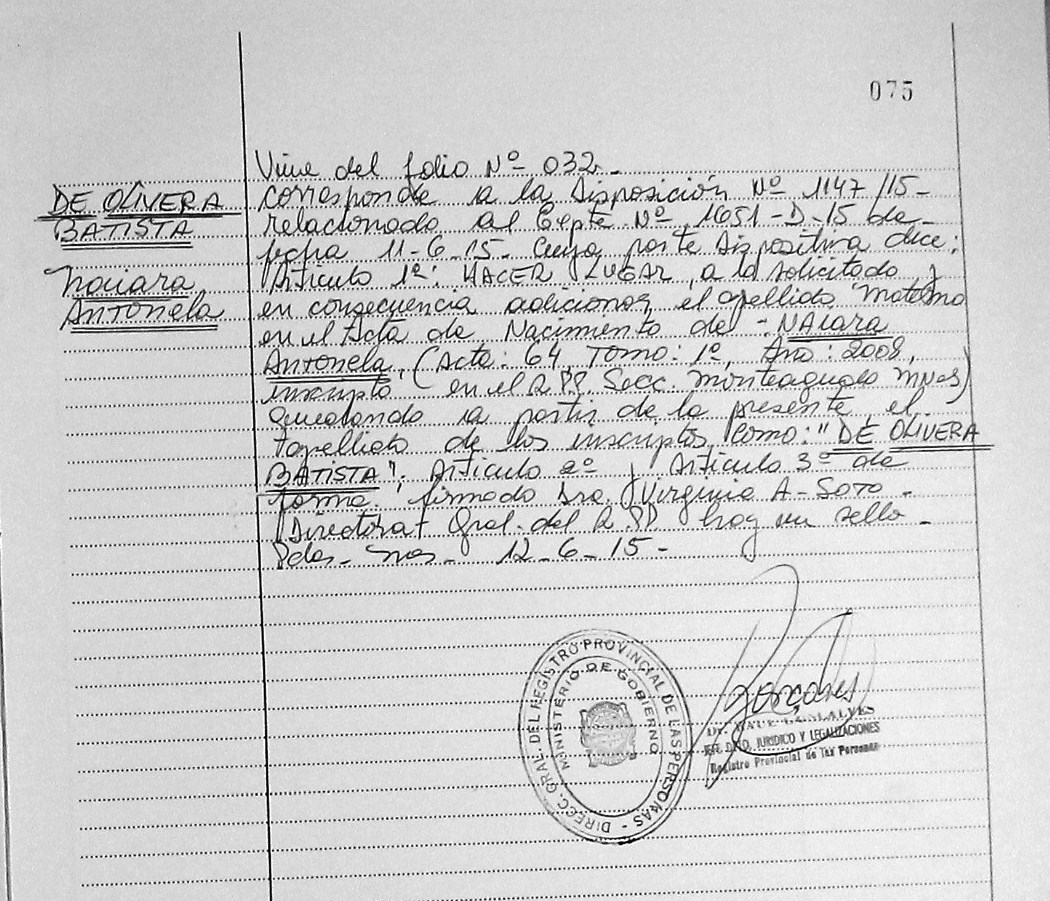 075
DE OLIVERA
BATISTA
Naiara
Antonela
Viene del folio Nº 032.-
corresponde a la Disposición Nº 1147/15-
relacionado al Expte. Nº 1651-D-15 de
fecha 11-6-15. Cuya parte dispositiva dice:
Articulo 1º: HACER LUGAR, a lo solicitado y
en consecuencia adicionar el apellido materno
en el Acta de Nacimiento de - NAIARA
Antonela, (Acta: 64, Tomo: 1º, Año: 2008,
inscripto en el R.PP. Secc. Monteagudo Mnes)
quedando a partir de la presente el
apellido de los inscriptos como: "DE OLIVERA
BATISTA"; Articulo 2º y Articulo 3º de
forma. firmado Dra. Virginia A-Soto-
Directora Gral. del R.PP hay un sello-
Pdas- Mnes- 12-6-15-
DIRECC. GRAL. DEL REGISTRO PROVINCIAL DE LAS PERSONAS -
MINISTERIO DE GOBIERNO
JEFE DPTO. JURIDICO Y LEGALIZACIONES
Registro Provincial de las Personas